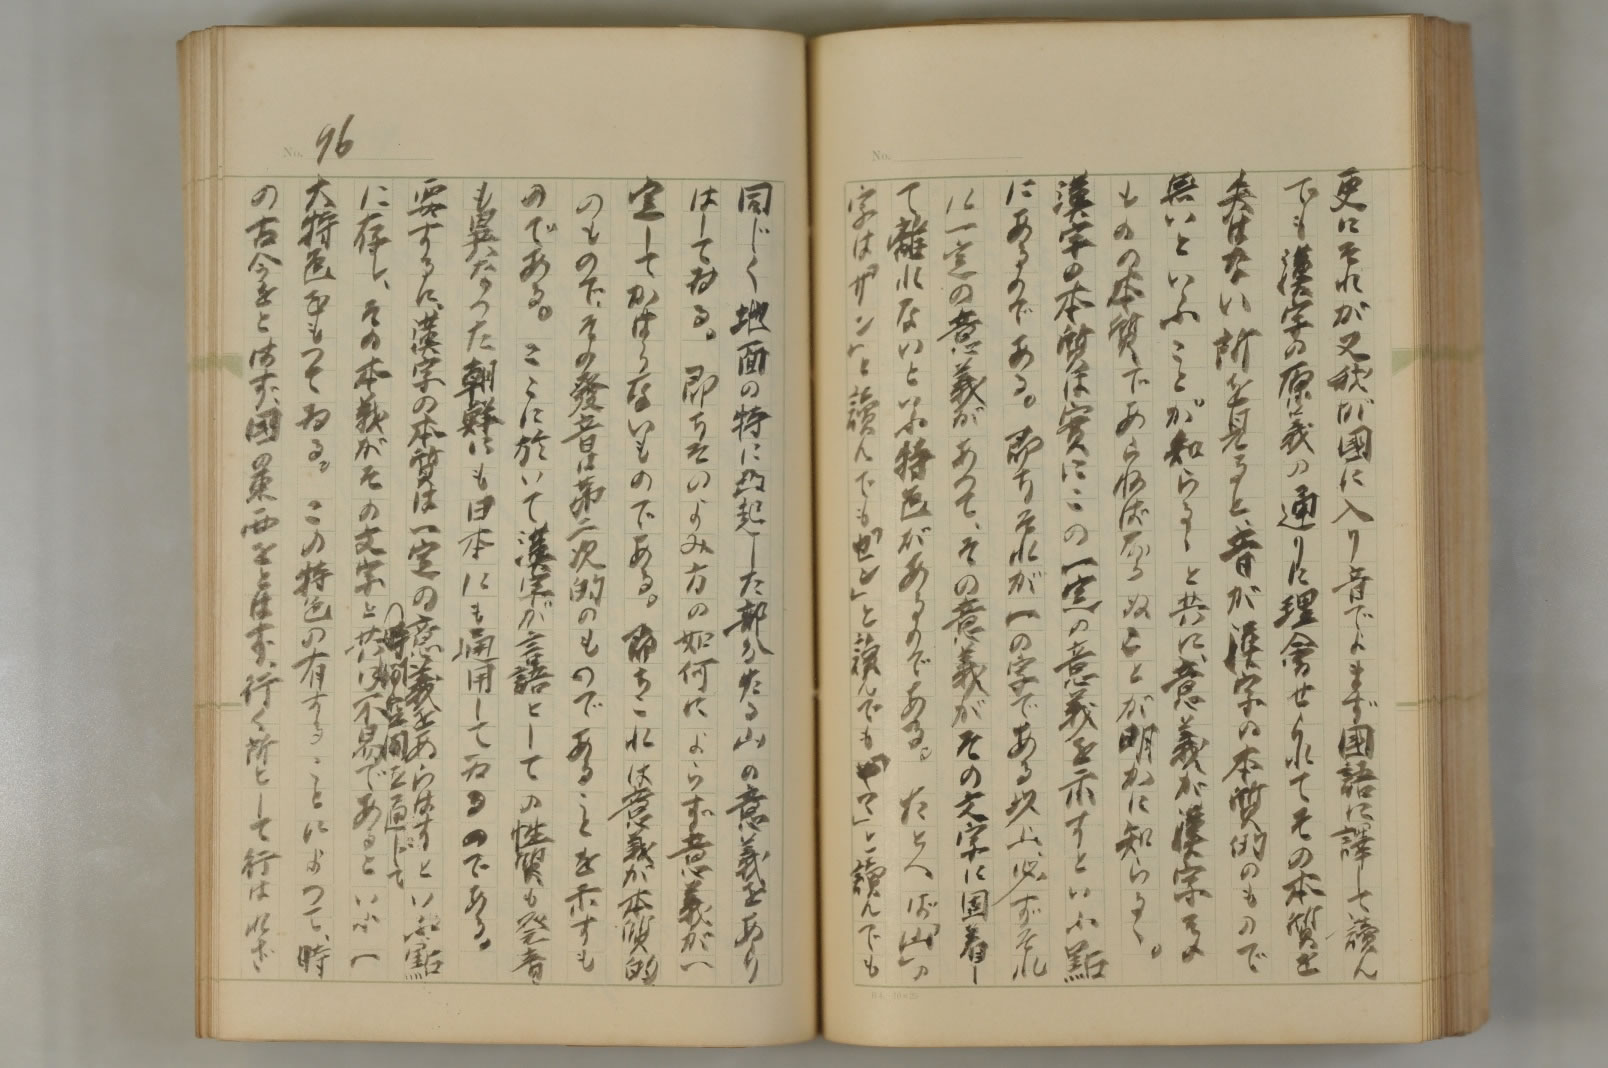 更にそれが又我が國に入り音でよまず國語に譯して讀ん
でも漢字の原義の通りに理會せられてその本質を
失はない所を見ると、音が漢字の本質的のもので
無いといふことが知らるゝと共に、意義が漢字その
ものの本質であらねばならぬことが明かに知らるゝ。
漢字の本質は實にこの一定の意義を示すといふ點
にあるのである。即ちそれが一の字である以上、必ずそれ
に一定の意義があつて、その意義がその文字に固着し
て離れないといふ特色があるのである。たとへば「山」の
字は「サン」と讀んでも「セン」と讀んでも「やま」と讀んでも
No.
No. 96
同じく地面の特に凸起した部分たる山の意義をあら
はしてゐる。即ちそのよみ方の如何によらず意義が一
定してかはらないものである。即ちこれは意義が本質的
のもので、その發音は第二次的のものであることを示すも
のである。ここに於いて漢字が言語としての性質も発音
も異なつた朝鮮にも日本にも通用してゐるのである。
要するに、漢字の本質は一定の意義をあらはすといふ點
に存し、その本義がその文字と共に時間空間を通じて不易であるといふ一
大特色をもつてゐる。この特色の有することによつて、時
の古今をとはず、國の東西をとはず、行く所として行はれざ